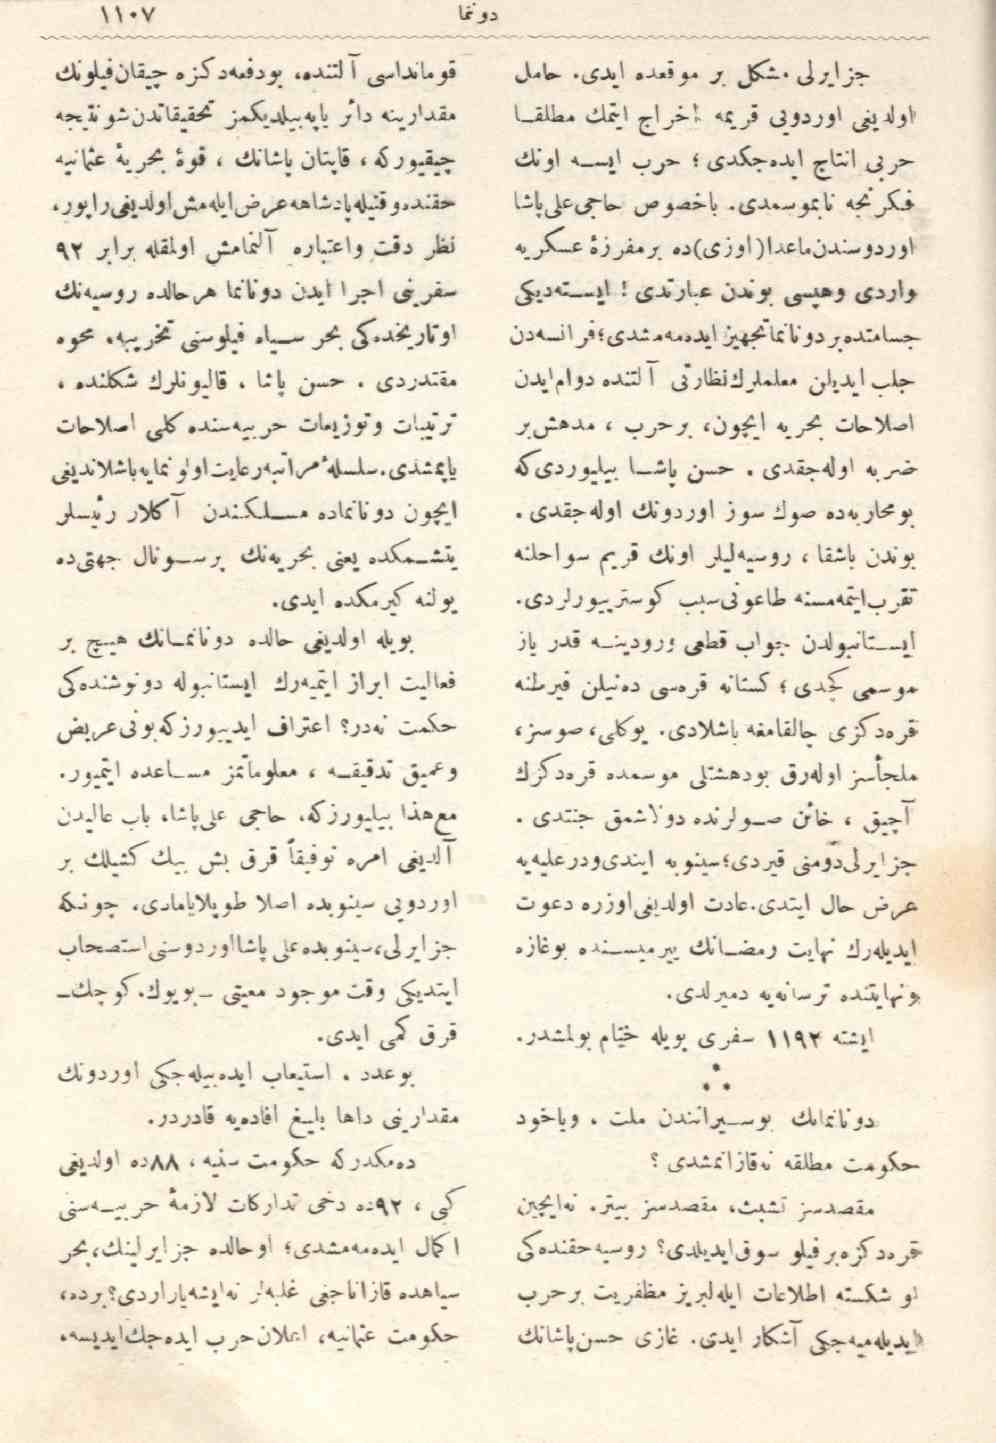 دونما
١١٠٧
جزایرلی مشکل بر موقعده ایدی. حامل
اولدیغی اوردویی قریمه اخراج ایتمك مطلقا
حربی انتاج ایده‌جکدی ؛ حرب ایسه اونك
فکرنجه نابموسمدی. باخصوص حاجی علی پاشا
اوردوسندن ماعدا (اوزی)ده بر مفرزهٔ عسکریه
واردی وهپسی بوندن عبارتدی ! ایسته‌دیکی
جسامتده بر دونانما تجهیز ایده‌مه‌مشدی؛ فرانسه‌دن
جلب ایدیلن معلملرك نظارتی آلتنده دوام ایدن
اصلاحات بحریه ایچون، بر حرب ، مدهش بر
ضربه اوله‌جقدی . حسن پاشا بیلیوردی‌که
بو محاربه‌ده صوك سوز اوردونك اوله‌جقدی .
بوندن باشقا ، روسیه‌لیلر اونك قریم سواحلنه
تقرب ایتمه‌مسنه طاعونی سبب کوسترییورلردی.
ایستانبولدن جواب قطعی ورودینه قدر یاز
موسمی کچدی ؛ کستانه قره‌سی ده‌نیلن فیرطنه
قره‌دکزی چالقامغه باشلادی. یوکلی، صوسز،
ملجأسز اوله‌رق بودهشتلی موسمده قره‌دکزك
آچیق ، خائن صولرنده دولاشمق جنتدی .
جزایرلی دومنی قیردی؛ سینوبه ایندی ودرعلیه‌یه
عرض حال ایتدی. عادت اولدیغی اوزره دعوت
ایدیله‌رك نهایت رمضانك ییرمیسنده بوغازه
ونهایتنده ترسانه‌یه دمیرلدی.
ایشته ١١٩٢ سفری بویله ختام بولمشدر.
⁂
دونانمانك بوسیرانندن ملت ، ویاخود
حکومت مطلقه نه قازانمشدی ؟
مقصدسز تشبث، مقصدسز بیتر. نه‌ایچین
قره‌دکزه بر فیلو سوق ایدیلدی؟ روسیه حقنده‌کی
او شکسته اطلاعات ایله لبریز مظفریت بر حرب
ایدیله‌میه‌جکی آشکار ایدی. غازی حسن پاشانك
قومانداسی آلتنده، بودفعه دکزه چیقان فیلونك
مقدارینه دائر یاپه‌بیلدیکمز تحقیقاتدن شو نتیجه
چیقیورکه ، قاپتان پاشانك ، قوهٔ بحریهٔ عثمانیه
حقنده وقتیله پادشاهه عرض ایله‌مش اولدیغی راپور،
نظر دقت واعتباره آلنمامش اولمقله برابر ٩٢
سفرینی اجرا ایدن دونانما هر حالده روسیه‌نك
او تاریخده‌کی بحر سیاه فیلوسنی تخریبه، محوه
مقتدردی . حسن پاشا ، قالیونلرك شکلنده ،
ترتیبات وتوزیعات حربیه‌سنده کلی اصلاحات
یاپمشدی. سلسلهٔ مراتبه رعایت اولونمایه باشلاندیغی
ایچون دونانماده مسلکندن آکلار رئیسلر
یتشمکده یعنی بحریه‌نك پرسونال جهتی‌ده
یولنه کیرمکده ایدی.
بویله اولدیغی حالده دونانمانك هیچ بر
فعالیت ابراز ایتمیه‌رك ایستانبوله دونوشنده‌کی
حکمت نه‌در؟ اعتراف ایدییورزکه بونی عریض
وعمیق تدقیقه ، معلوماتمز مساعده ایتمیور.
مع‌هذا بیلیورزکه، حاجی علی پاشا، باب عالیدن
آلدیغی امره توفیقاً قرق بش بیك کشیلك بر
اوردویی سینوبده اصلا طوپلایامادی. چونکه
جزایرلی، سینوبده علی پاشا اوردوسنی استصحاب
ایتدیکی وقت موجود معیتی ـ بویوك، کوچك ـ
قرق کمی ایدی.
بو عدد . استیعاب ایده‌بیله‌جکی اوردونك
مقدارینی داها بلیغ افاده‌یه قادردر.
ده‌مکدرکه حکومت سنیه ، ٨٨ده اولدیغی
کبی ، ٩٢ده دخی تدارکات لازمهٔ حربیه‌سنی
اکمال ایده‌مه‌مشدی؛ او حالده جزایرلینك، بحر
سیاهده قازاناجغی غلبه‌لر نه‌ایشه یاراردی؟ برده،
حکومت عثمانیه، اعلان حرب ایده‌جك ایدیسه،